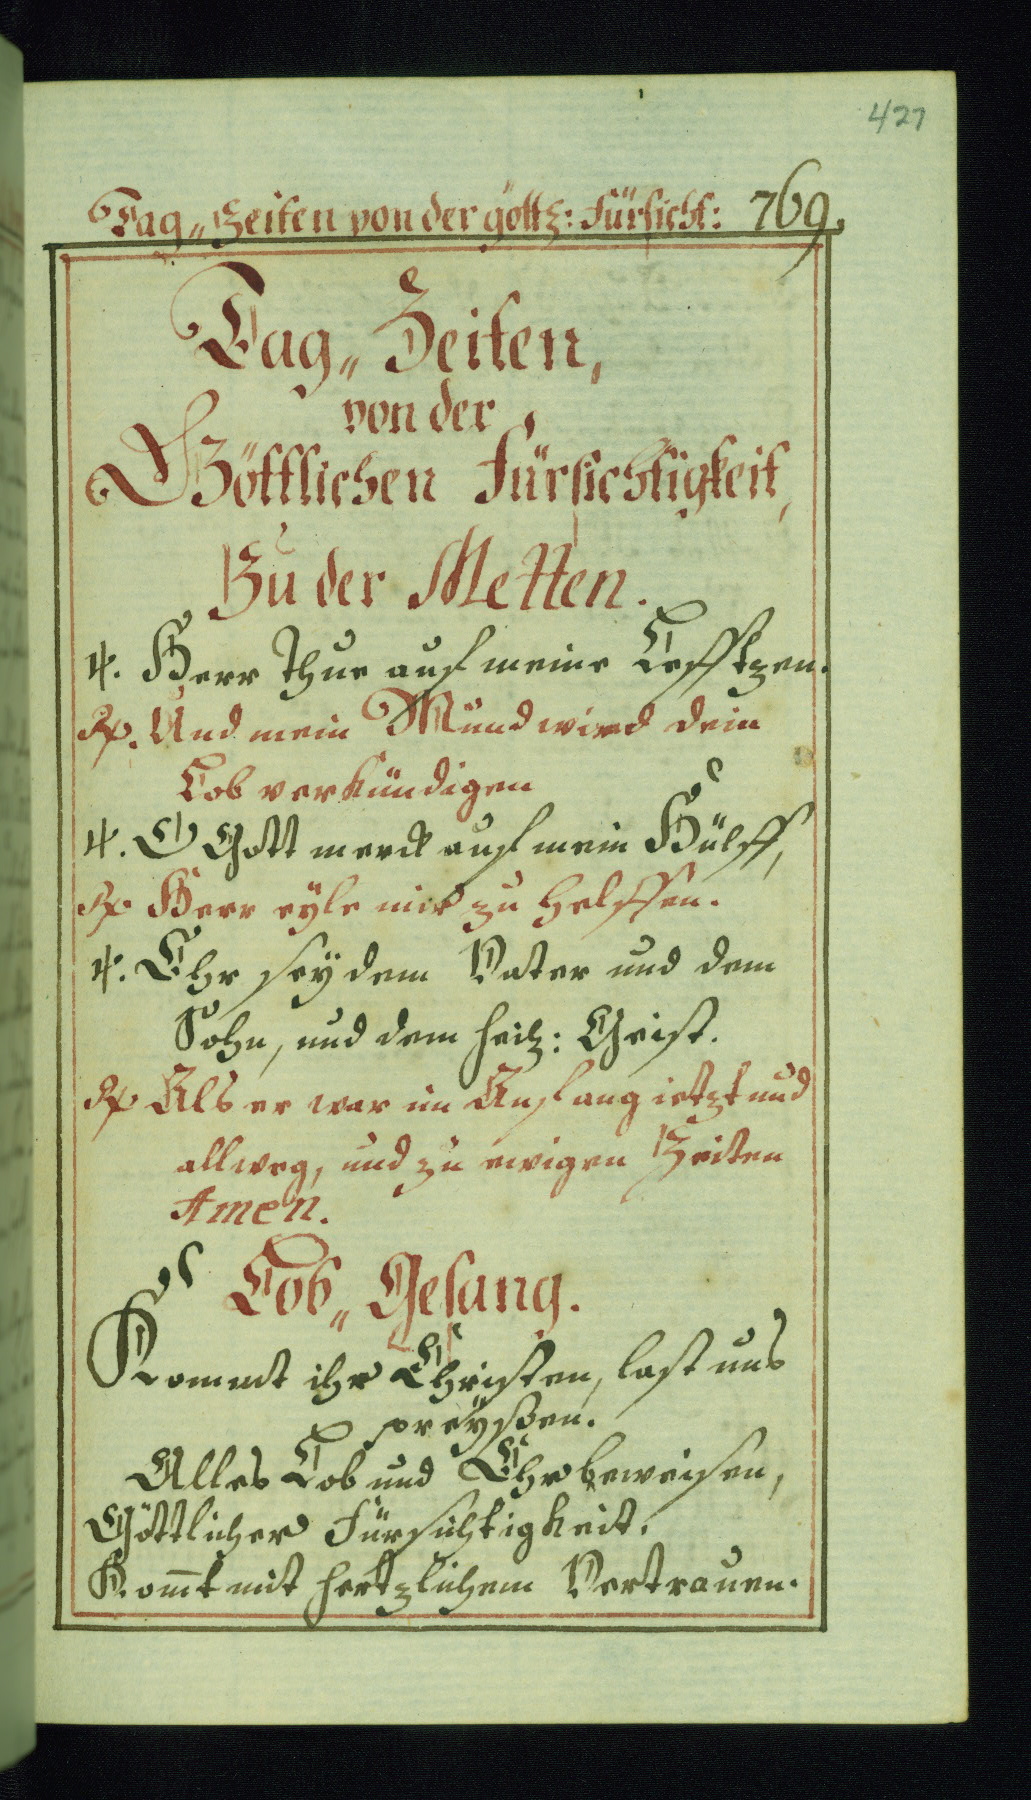 427
Tag„ Zeiten von der göttl: Fürsicht: 769.
Tag„ Zeiten,
von der
Göttlichen Fürsichtigkeit,
Zu der Metten.
℣. Herr Thue auf meine Lefftzen.
℟. Und mein Mund wird dein
Lob verkündigen
℣. O Gott merck auf mein Hülff,
℟ Herr eyle mir zu helffen.
℣. Ehr seÿ dem Vater und dem
Sohn, und dem heil: Geist.
℟ Als er war im Anfang ietzt und
allweg, und zu ewigen Zeiten
Amen.
Lob„ Gesang.
Kommt ihr Christen, last uns
preÿßen.
Alles Lob und Ehr beweisen,
Göttlicher Fürsichtigkeit.
Kom̄t mit hertzlichem Vertrauen.